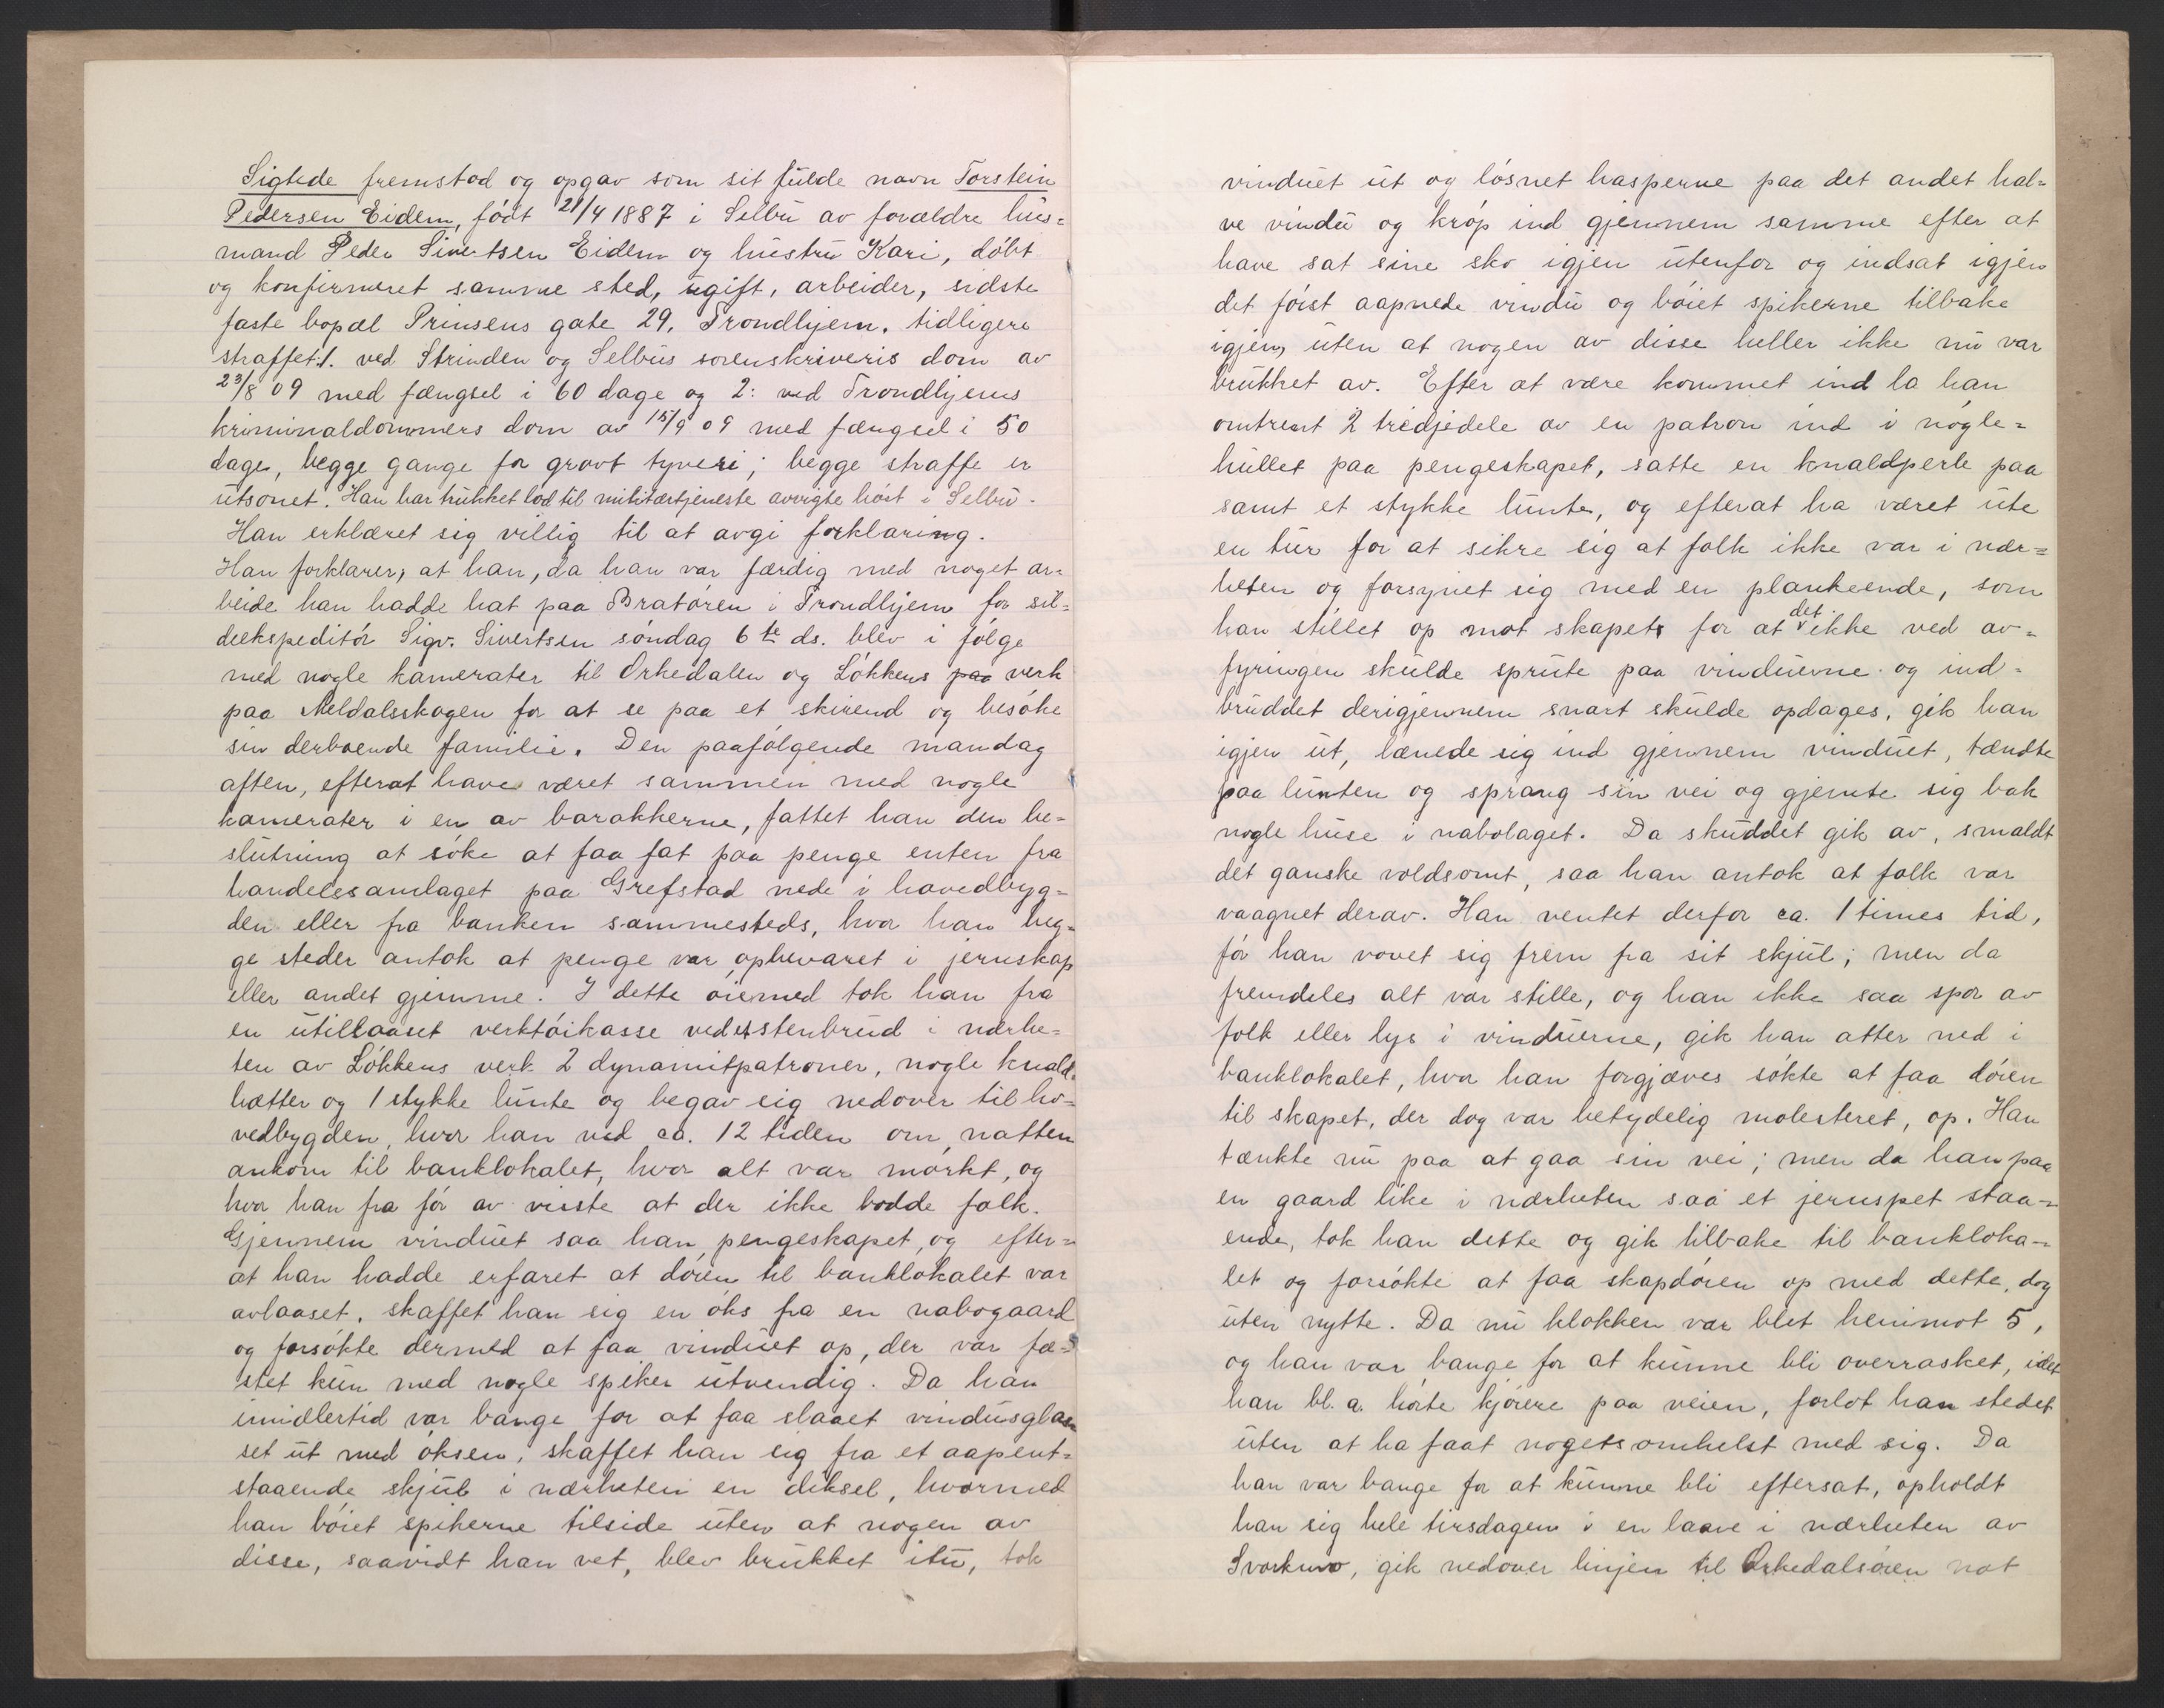 Sigtede fremstod og opgav som sit fulde navn Torstein
Pedersen Eidem, födt 21/4 1887 i Selbu av forældre hus=
mand Peder Sivertsen Eidem og hustru Kari, döbt
og konfirmeret samme sted, ugift, arbeider, sidste
faste bopæl Prinsens gate 29, Trondhjem. tidligere
straffet: 1. ved Strinden og Selbus sorenskriveris dom av
23/8 09 med fængsel i 60 dage og 2: ved Trondhjems
kriminaldommers dom av 15/9 09 med fængsel i 50
dage, begge gange for grovt tyveri; begge straffe er
utsonet. Han har trukket lod til militærtjeneste avvigte höst i Selbu.
Han erklæret sig villig til at avgi forklaring.
Han forklarer, at han, da han var færdig med noget ar=
beide han hadde hat paa Bratören i Trondhjem for sil=
deekspeditör Sigv. Sivertsen söndag 6te ds. blev i fölge
med nogle kamerater til Orkedalen og Lökkens paa verk
paa Meldalsskogen for at se paa et skirend og besöke
sin derboende familie. Den paafölgende mandag
aften, efterat have været sammen med nogle
kamerater i en av barakkerne, fattet han den be=
slutning at söke at faa fat paa penge enten fra
handelssamlaget paa Grefstad nede i hovedbyg=
den eller fra banken sammesteds, hvor han beg=
ge steder antok at penge var opbevaret i jernskap
eller andet gjemme. I dette öiemed tok han fra
en utillaaset verktöikasse ved et stenbrud i nærhe=
ten av Lökkens verk 2 dynamitpatroner, nogle knald=
hætter og 1 stykke lunte og begav sig nedover til ho=
vedbygden, hvor han ved ca. 12 tiden om natten
ankom til banklokalet, hvor alt var mörkt, og
hvor han fra för av visste at der ikke bodde folk.
Gjennem vinduet saa han pengeskapet, og efter=
at han hadde erfaret at dören til banklokalet var
avlaaset, skaffet han sig en öks fra en nabogaard
og forsökte dermed at faa vinduet op, der var fæ=
stet kun med nogle spiker utvendig. Da han
imidlertid var bange for at faa slaaet vindusglas=
set ut med öksen, skaffet han sig fra et aapent=
staaende skjul i nærheten en diksel, hvormed
han böiet spikerne tilside uten at nogen av
disse, saavidt han vet, blev brukket itu, tok
vinduet ut og lösnet hasperne paa det andet hal=
ve vindu og kröp ind gjennem samme efter at
have sat sine sko igjen utenfor og indsat igjen
det först aapnede vindu og böiet spikerne tilbake
igjen, uten at nogen av disse heller ikke nu var
brukket av. Efter at være kommet ind la han
omtrent 2 tredjedele av en patron ind i nögle=
hullet paa pengeskapet, satte en knaldperle paa
samt et stykke lunte, og efterat ha været ute
en tur for at sikre sig at folk ikke var i nær=
heten og forsynet sig med en plankeende, som
han stillet op mot skapet for at det ikke ved av=
fyringen skulde sprute paa vinduerne og ind=
bruddet derigjennem snart skulde opdages, gik han
igjen ut, lænede sig ind gjennem vinduet, tændte
paa lunten og sprang sin vei og gjemte sig bak
nogle huse i nabolaget. Da skuddet gik av, smaldt
det ganske voldsomt, saa han antok at folk var
vaagnet derav. Han ventet derfor ca. 1 times tid,
för han vovet sig frem fra sit skjul; men da
fremdeles alt var stille, og han ikke saa spor av
folk eller lys i vinduerne, gik han atter ned i
banklokalet, hvor han forgjæves sökte at faa dören
til skapet, der dog var betydelig molesteret, op. Han
tænkte nu paa at gaa sin vei; men da han paa
en gaard like i nærheten saa et jernspet staa=
ende, tok han dette og gik tilbake til bankloka=
let og forsökte at faa skapdören op med dette, dog
uten nytte. Da nu klokken var blet henimot 5,
og han var bange for at kunne bli overrasket, idet
han bl. a. hörte kjörere paa veien, forlot han stedet
uten at ha faat nogetsomhelst med sig. Da
han var bange for at kunne bli eftersat, opholdt
han sig hele tirsdagen i en laave i nærheten av
Svorkmo, gik nedover linjen til Orkedalsören nat